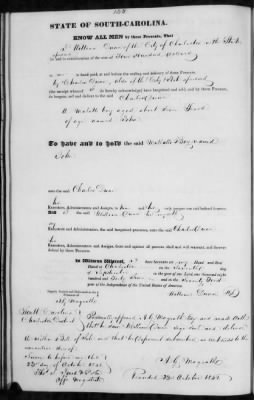 STATE OF SOUTH-CAROLINA.
KNOW ALL MEN by these Presents, That
I William Dunn of the City of Charleston in the State
aforesaid
for and in consideration of the sum of Four Hundred Dollars
to me in hand paid, at and before the sealing and delivery of these Presents,
by Charles Dunn also of the City & State aforesaid
(the receipt whereof I do hereby acknowledge) have bargained and sold, and by these Presents,
do bargain, sell and deliver to the said Charles Dunn
A Mulatto boy aged about
of age named John
To have and to hold the said Mulatto Boy named
John
unto the said Charles Dunn
his
Executors, Administrators and Assigns, to his and their only proper use and behoof forever.
And I the said William Dunn
my
Executors and Administrators, the said bargained premises, unto the said Charles Dunn
his
Executors, Administrators and Assigns, from and against all persons shall and will warrant, and forever
defend by these Presents.
In Witness Whereof, I have hereunto set my Hand and
Seal Dated at Charleston on the day
of September in the year of our Lord one thousand eight
hundred and and in the
year of the Independence of the United States of America.
Signed, Sealed and Delivered in the
Presence of
A. G. Magrath
William Dunn
South Carolina
Charleston District
Personally appeared A. G. Magrath Esq and made Oath
that he saw William Dunn sign seal and deliver
the within Bill of Sale and that he Deponent subscribed as the
Sworn to before me this
22d day of October 1841
A. G. Magrath
Recorded 22d October 1841